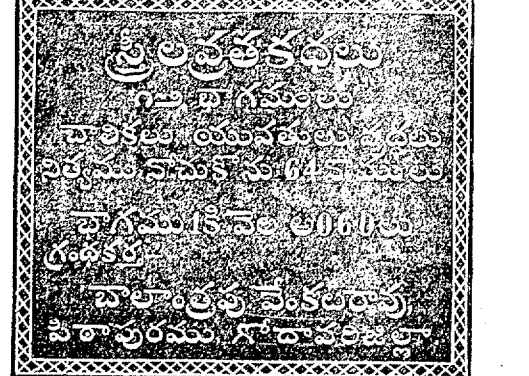 స్త్రీలవ్రతకథలు
౧-౨ భాగములు
బాలికలు యువతులు వృద్ధులు
నిత్యము నోచుకొను 64 నోములు
భాగము 1కి వెల
గ్రంథకర్త
బాలాంత్రపు వేంకటరావు
పిఠాపురము గోదావరిజిల్లా